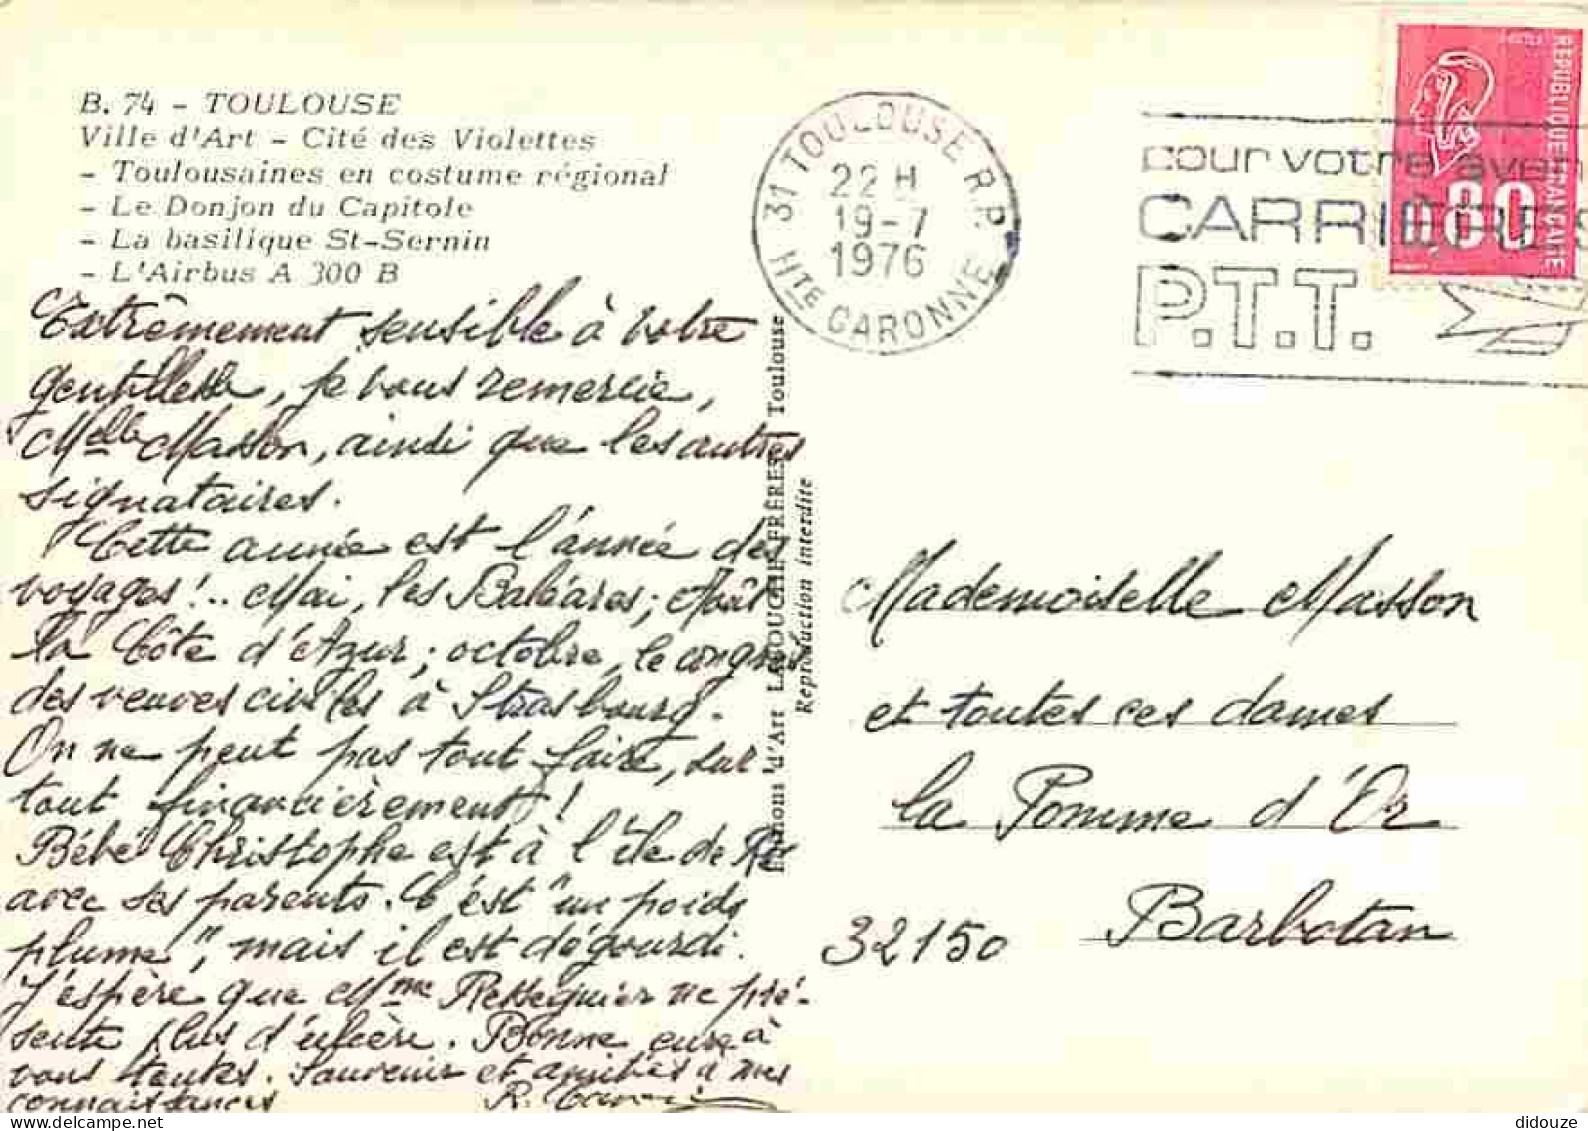 B. 74 - TOULOUSE
Ville d'Art - Cité des Violettes
- Toulousaines en costume régional
- Le Donjon du Capitole
- La basilique St-Sernin
- L'Airbus A 300 B
Extrêmement sensible à votre
gentillesse, je vous remercie,
Melle Masson, ainsi que les autres
signataires.
Cette année est l'année des
voyages !.. Mai, les Baléares ; Août
la Côte d'Azur ; octobre, le congrès
des veuves civiles à Strasbourg.
On ne peut pas tout faire, sur
tout financièrement !
Bébé Christophe est à l'île de Ré
avec ses parents. C'est "un poids
plume", mais il est dégourdi.
J'espère que Mme Resseguier ne pré-
sente plus d'ulcère. Bonne cure à
vous toutes. Souvenir et amitiés à mes
connaissances
R.
Editions d'Art LARROUCHE FRÈRES Toulouse
Reproduction interdite
31 TOULOUSE R.P.
22 H
19-7
1976
HTE GARONNE
pour votre aven
CARRIÈRES
P.T.T.
POSTES
REPUBLIQUE FRANÇAISE
0.80
Mademoiselle Masson
et toutes ces dames
la Pomme d'Or
32150 Barbotan
didouze